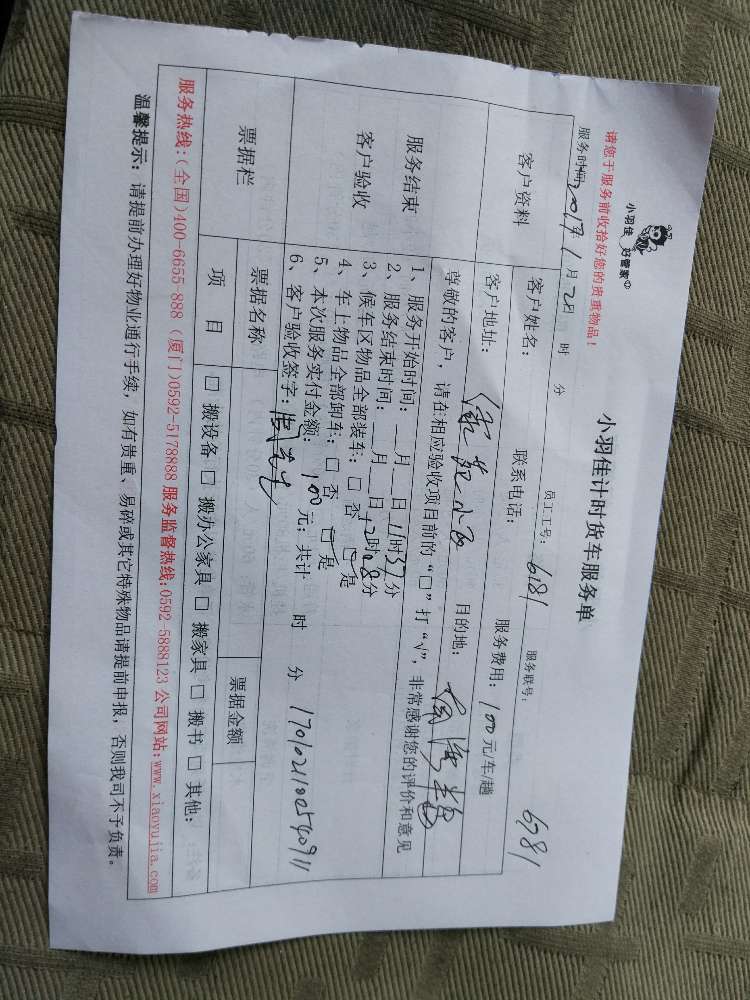 小羽佳 好管家
小羽佳计时货车服务单
请您于服务前收拾好您的贵重物品！
服务时间 2017年 1月 2日 时 分 员工工号： 6181 服务联号： 6781
客户资料
客户姓名： 联系电话： 服务费用：100元/车/趟
客户地址： 目的地：
服务结束
客户验收
尊敬的客户，请在相应验收项目前的“□”打“√”，非常感谢您的评价和意见
1、服务开始时间： 月 日 11时37分
2、服务结束时间： 月 日 时08分
3、候车区物品全部装车：□ 否 □ 是
4、车上物品全部卸车：□ 否 □ 是
5、本次服务实付金额：100元；共计 时 分
6、客户验收签字： 17010211002540911
票据栏
票据名称 票据金额
项 目 □ 搬设备 □ 搬办公家具 □ 搬家具 □ 搬书 □ 其他：
服务热线：(全国)400-6655-888 (厦门)0592-5178888 服务监督热线:0592-5888123 公司网站:www.xiaoyujia.com
温馨提示：请提前办理好物业通行手续，如有贵重、易碎或其它特殊物品请提前申报，否则我司不予负责。